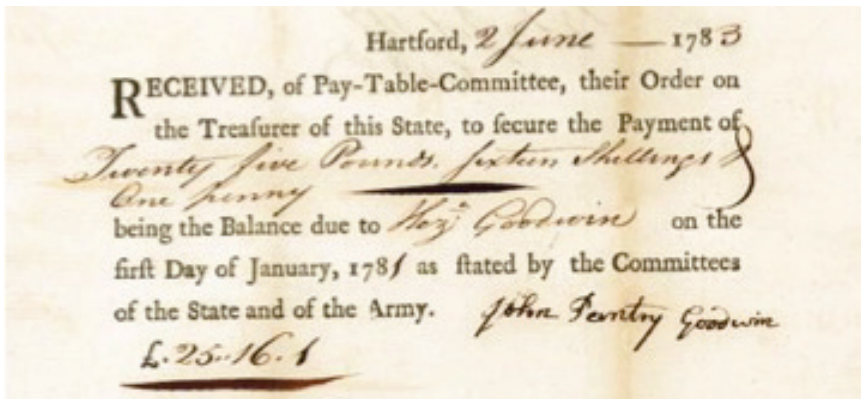 Hartford, 2 June — 1783
RECEIVED, of Pay-Table-Committee, their Order on
the Treaſurer of this State, to ſecure the Payment of
Twenty five Pounds. ſixteen Shillings &
One penny
being the Balance due to Hezª Goodwin on the
firſt Day of January, 1781 as ſtated by the Committees
of the State and of the Army. John Pantry Goodwin
£.25..16.1